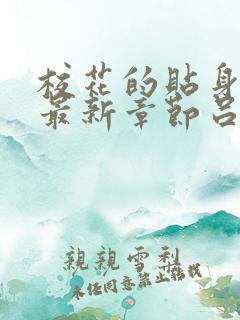 校花的貼身
最新章節呂
親親雪梨
未经同意禁止转载